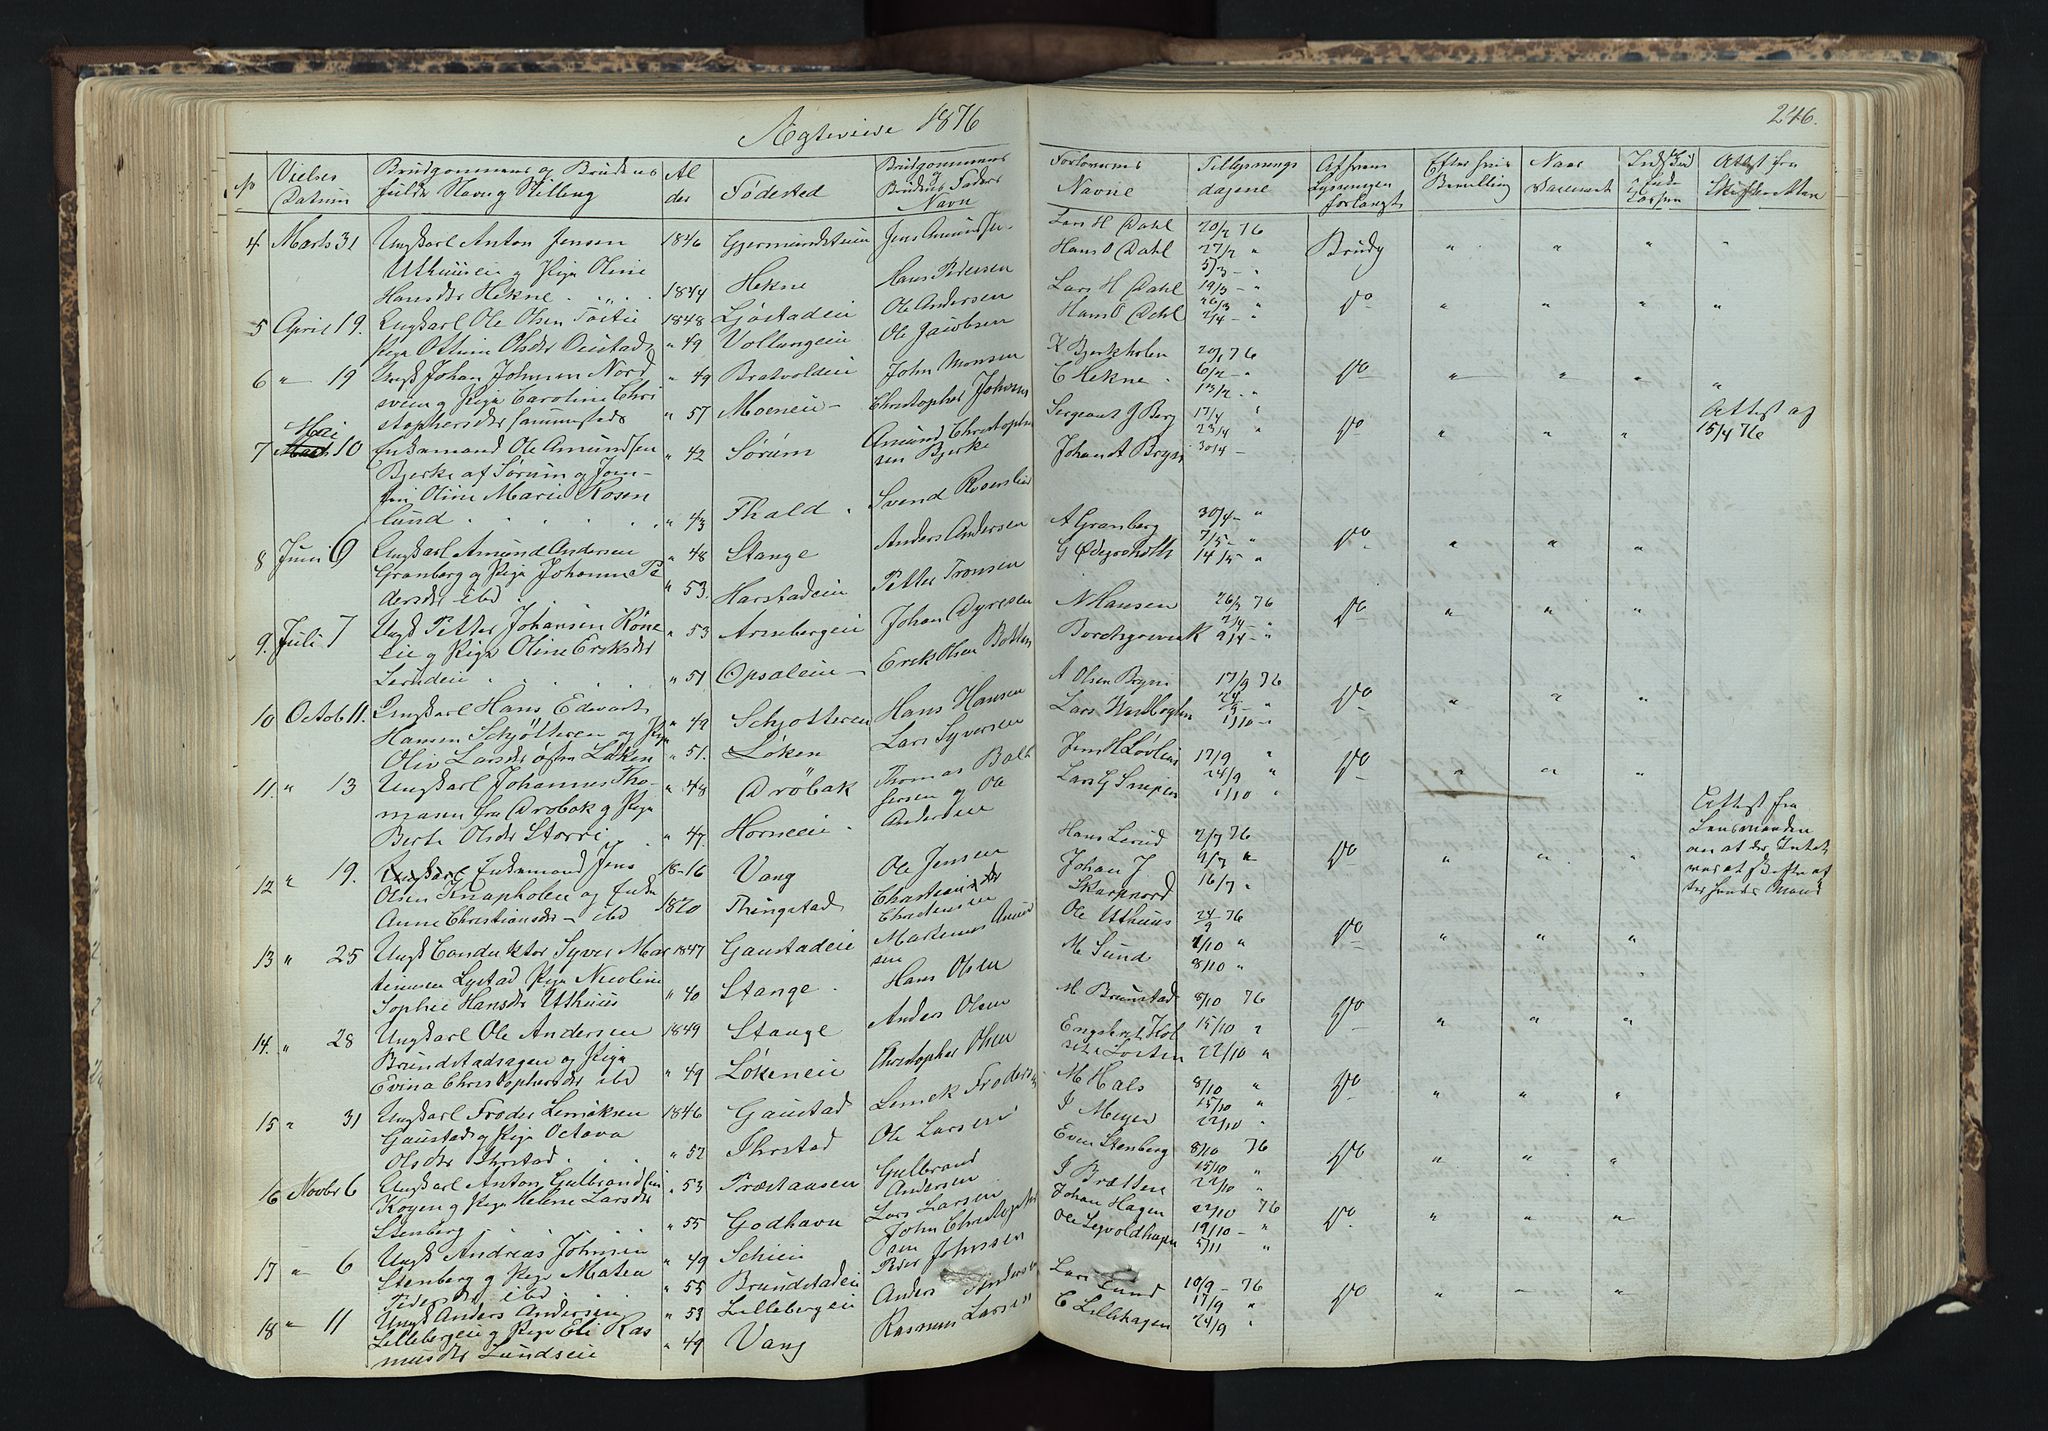 Ægteviede 1876
246.
No
Vielses Datum
Brudgommens og Brudens fulde Navn og Stilling
Alder
Fødested
Brudgommens og Brudens Faders Navn
Forlovernes Navne
Tillysnings dagene
Af hvem Lysningen forlangt
Efter hvis Bevilling
Naar Vaccineret
Attest fra Skifteretten
4 Marts 31 Ungkarl Anton Jensen 1846 Gjermundstuen Jens Amundsen Lars H Dahl 20/2 76 Brudg " " "
Uthuuseie og Pige Oline Hans O Dahl 27/2 "
Hansdtr Hekne 1844 Hekne Hans Pedersen 5/3 - "
5 April 19. Ungkarl Ole Olsen 1848 Ljøstadeie Ole Andersen Lars H Dahl 19/3 - " Do " " " "
Pige Ottine Olsdtr " 49 Vollungeie Ole Jacobsen Hans O Dahl 26/3 " 2/4 - "
6 " 19 Ungk Johan Johnsen Nord " 49 Bratvoldeie John Monsen K Bjerkholen 20/1 76 Do " " " "
sveen og Pige Caroline Chri C Hekne 6/2 - "
stophersdtr sammesteds " 57 Moeneie Christopher Johnsen 13/2 - "
7 Mai 10 Enkemand Ole Amundsen " 42 Sørum Amund Christophersen Bjerke Sergeant J Berg 17/4 " Do " " " Attest af 15/4 76
Bjerke af Sørum og Jom- Johan A Bryni 23/4 " 30/4 -
fru Oline Marie Rosen
lund " 43 Fhald Svend Rosenlund
8 Juni 6 Ungkarl Amund Andersen " 48 Stange Anders Andersen A Granberg 30/4 - " Do " " "
Granberg og Pige Johanne Pe G Ødegaard 7/5 - " 14/5 "
dersdtr ibd " 53 Harstadeie Petter Tronsen
9. Juli 7 Ungk Petter Johansen Røne " 53 Arnebergeie Johan Dyresen N Hansen 26/3 76 Do " " "
eie og Pige Oline Eriksdtr Borchgrevink 2/4 - " 9/4 - "
Lerudeie " 51 Opsaleie Erik Olsen
10 Octob 11. Ungkarl Hans Edevart " 49 Schjøtteren Hans Hansen A Olsen Bryni 17/9 76 Do " " "
Hansen Schjøtteren og Pige 24/9 - "
Olin Larsdtr Løken " 51. Løken Lars Syversen 1/10 - "
11. " 13 Ungkarl Johannes Tho " 48 Drøbak Thomas 17/9 " Do " " "
mann fra Drøbak og Pige Lars G 24/9 "
Berte Olsdtr Storri " 47. Horneeie Ole Andersen 1/10 "
12 " 19. Enkemand Jens 18-16 Vang Ole Jensen Hans Lerud 2/7 76 Do " " " Attest fra
Olsen Knapholen og Enke Johan J 9/7 " Lensmanden
Anne Christiansdtr - ibd 1820 Thingstad Christensen Skarpnord 16/7 " an at der Intet
var at skifte ef
ter hendes Mand
13 " 25 Ungk Conduktør Syver Mar 1847 Gaustadeie Martinus Amundsen Ole Uthuus 24/9 76 Do " " "
tinusen Lystad Pige Nicoline M Sund 1/10 "
Sophie Hansdtr Uthuus " 40 Stange Hans Olsen 8/10 "
14. " 28 Ungkarl Ole Andersen 1849 Stange Anders Olsen M Brunstad 8/10 76 Do " " "
Brundstadhagen og Pige Engebret Hol 15/10 "
Evina Christophersdtr ibd " 49 Løkeneie Christopher Olsen 22/10 "
15 " 31 Ungkarl Frodes Lemeksen 1846 Gaustad Lemek Frodersen M Hals 8/10 " Do " " "
Gaustad og Pige Octava J Meyer 15/10 "
Olsdtr Ihrstad " 52 Ihrstad Ole Larsen 22/10 "
16 Novbr 6 Ungkarl Anton Gulbrandsen " 53 Præstaasen Gulbrand Andersen Even Stenberg 8/10 76 Do " " "
Koyen og Pige Helene Larsdtr J Bratten 15/10 "
Stenberg " 55 Godhavn Lars Larsen 22/10 "
17 " 6 Ungk Andreas Johnsen " 49 Schieie John Christophersen Johan Hagen 22/10 76 Do " " "
Stenberg og Pige Matea Ole Sejvoldhagen 19/10 - "
Pedersdtr ibd " 55 Brundstadeie Peder Johnssen 5/11 "
18 " 11 Ungk Anders Andersen " 53 Lillebergeie Anders Andersen Lars Lund 10/9 - 76 Do " " "
Lillebergeie og Pige Eli Ras C Lillehagen 17/9 "
musdtr Lundseie " 49 Vang Rasmus Larsen 24/9 "